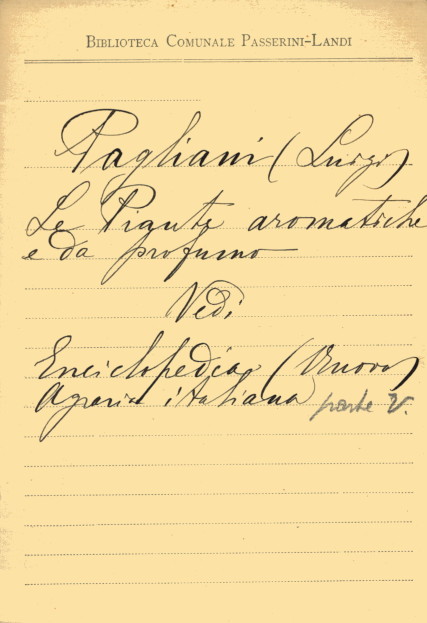 BIBLIOTECA COMUNALE PASSERINI-LANDI
Pagliani (Luigi)
Le Piante aromatiche
e da profumo
Vedi
Enciclopedia (Nuova)
Agraria italiana parte V.